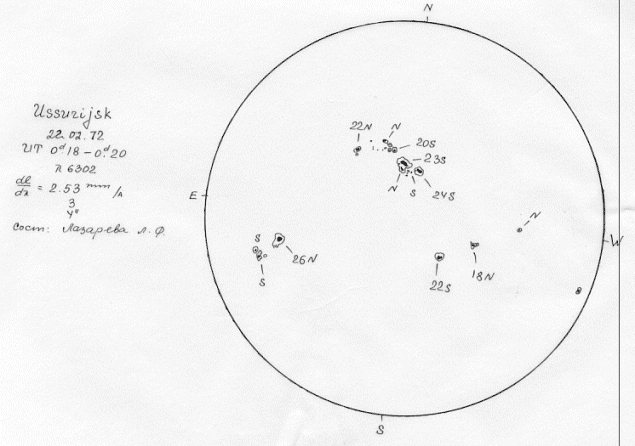 Ussurijsk
22.02.72
UT 0ᵈ18 – 0ᵈ20
λ 6302
dl/dλ = 2.53 mm/A
3
4"
Сост: Лазарева Л. Ф.
N
22N
N
20S
23S
N
S
24S
E
N
W
S
26N
S
22S
18N
S